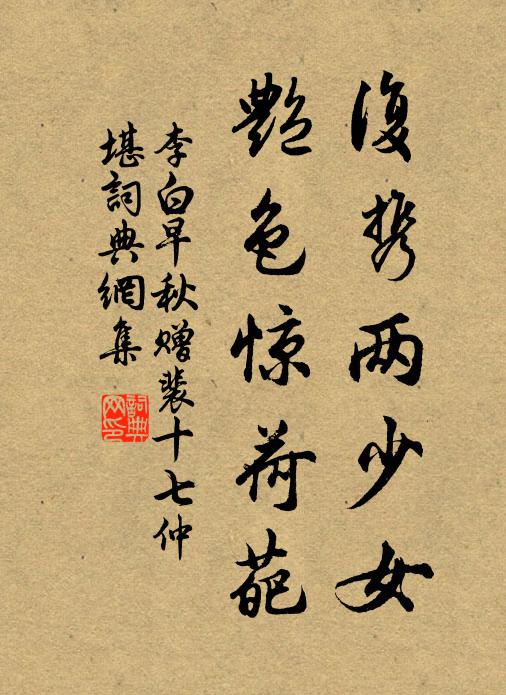 復携两少女
艷色惊荷葩
李白早秋赠裴十七仲
堪詞典網集
詞典
网印